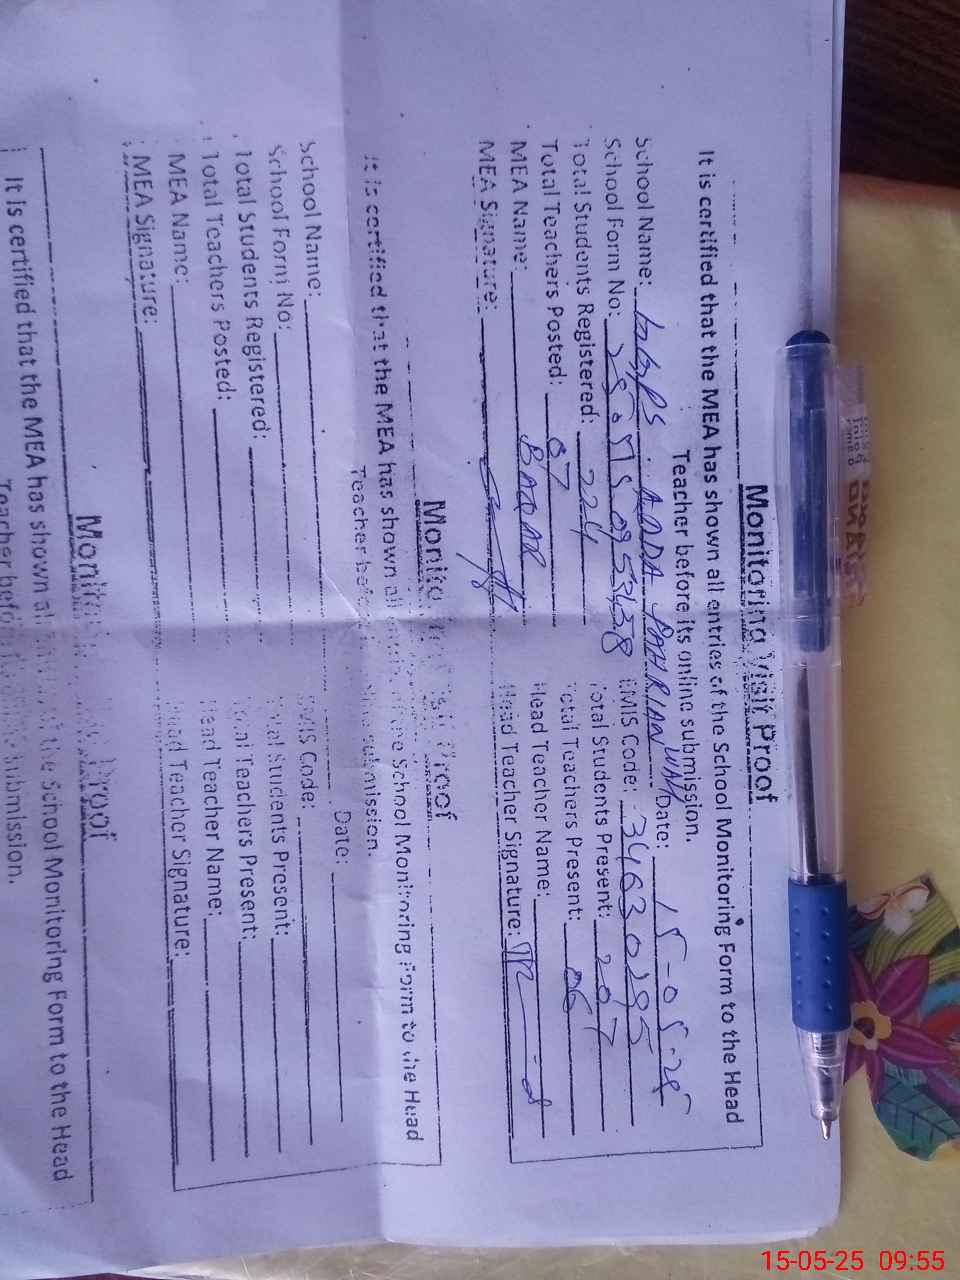 Monitoring Visit Proof
It is certified that the MEA has shown all entries of the School Monitoring Form to the Head
Teacher before its online submission.
School Name: GGPS ADDA PAHRIAN WALA Date: 15-05-25
School Form No: EMIS Code: 34630295
Total Students Registered: 224 Total Students Present: 207
Total Teachers Posted: 07 Total Teachers Present: 06
MEA Name: Head Teacher Name:
MEA Signature: Head Teacher Signature:
Monitoring Visit Proof
It is certified that the MEA has shown all entries of the School Monitoring Form to the Head
Teacher before its online submission.
School Name: Date:
School Form No: EMIS Code:
Total Students Registered: Total Students Present:
Total Teachers Posted: Total Teachers Present:
MEA Name: Head Teacher Name:
MEA Signature: Head Teacher Signature:
Monitoring Visit Proof
It is certified that the MEA has shown all entries of the School Monitoring Form to the Head
Teacher before its online submission.
15-05-25 09:55